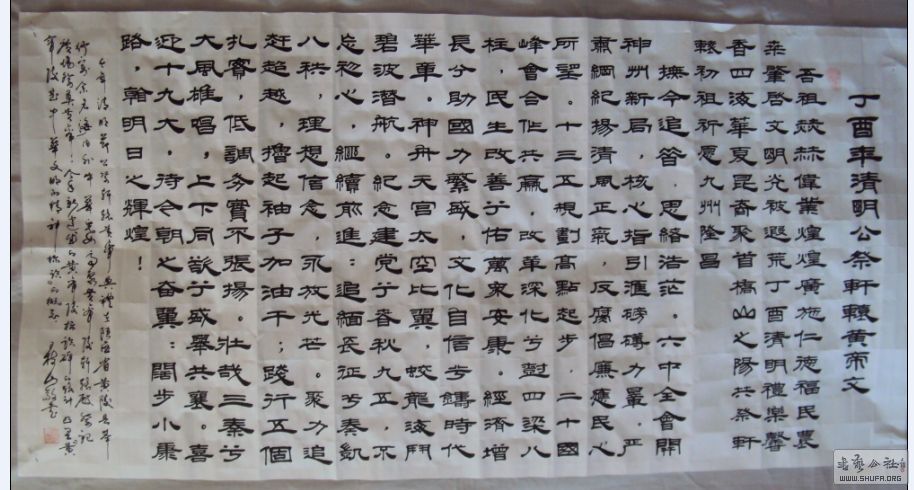 丁酉年清明公祭軒轅黃帝文
吾祖赫赫偉業煌煌廣施仁德福民農
桑肇啓文明光被遐荒丁酉清明禮樂馨
香四海華夏昆裔聚首橋山之陽共祭軒
轅初祖祈愿九州隆昌
撫今追昔，思緒浩茫。六中全會開
神州新局，核心指引匯磅礴力量，嚴
肅綱紀揚清風正氣，反腐倡廉應民心
所望。十三五規劃高點起步，二十國
峰會合作共贏，改革深化兮豎四梁八
柱，民生改善兮佑萬衆安康。經濟增
長兮助國力繁盛，文化自信兮鑄時代
華章。神舟天宮太空比翼，蛟龍海鬥
碧波潛航。紀念建党兮春秋九五，不
忘初心，繼續前進：追緬長征兮奏凱
八秩，理想信念，永放光芒。聚力追
赶超越，擼起袖子加油干；踐行五個
扎實，低調务實不張揚。壯哉三秦兮
大風雄唱，上下同欲兮盛舉共襄。喜
迎十九大。待今朝之奋翼：闊步小康
路，翰明日之輝煌！
書法公社
WWW.SHUFA.ORG